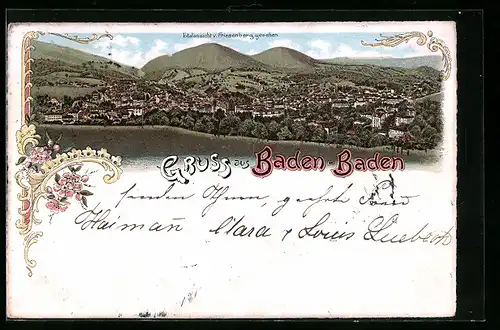 Totalansicht v. Friesenberg gesehen
Gruss aus Baden-Baden
senden Ihnen, geehrte
Haiman̄ Clara & Louis